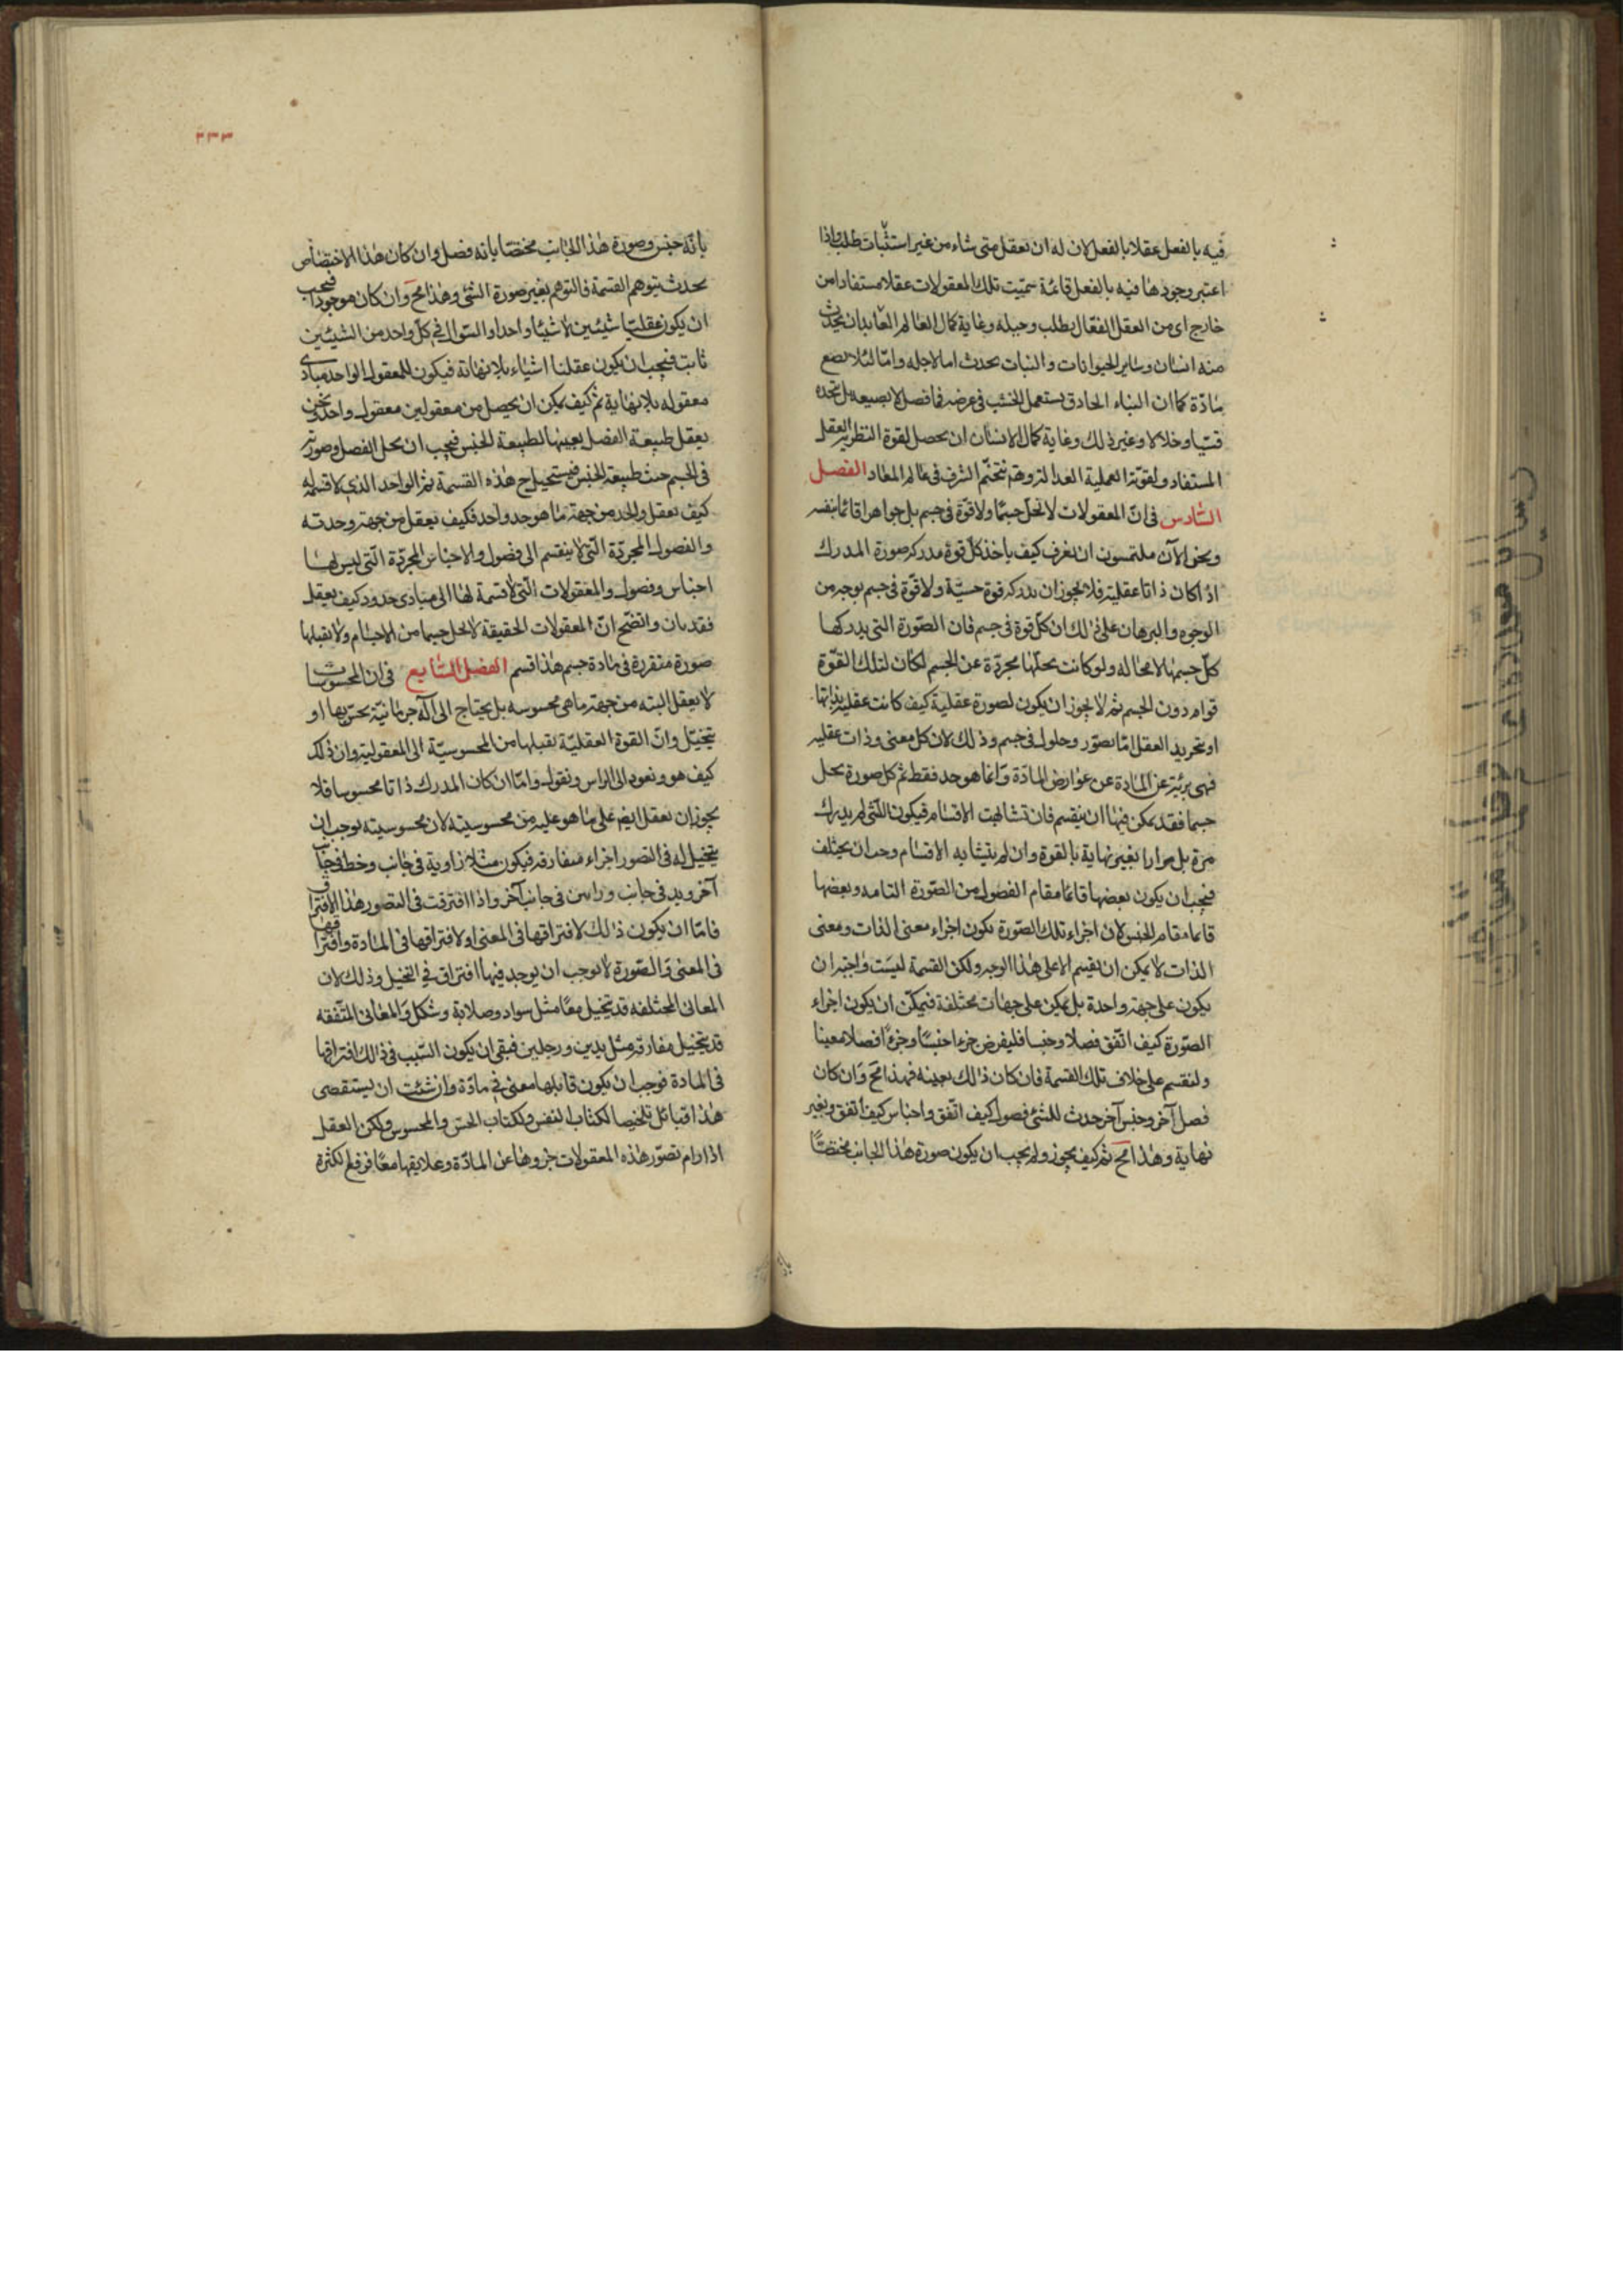 فيه بالفعل عقلا بالفعل لان له ان تعقل متى شاء من غير استثبات طلب واذا
اعتبر وجودها فيه بالفعل قائمة سميت تلك المعقولات عقلا مستفادا من
خارج اى من العقل الفعال بطلب وحيله وغاية كمال العالم العايد ان يحدث
منه انسان وساير الحيوانات والنبات يحدث اما لاجله واما لئلا يضع
مادة كما ان البناء الحاذق يستعمل الخشب فى غرضه فما فصل لا يضيعه بل تتخذه
قسيا وخلالا وغير ذلك وغاية كمال الانسان ان يحصل لقوة النظرية العقل
المستفاد ولقوته العملية العدالة وههنا يتختم الشرف فى عالم المعاد الفصل
السادس فى ان المعقولات لا تحل جسما ولا قوة فى جسم بل جواهرا قائما بنفسه
ونحن الآن ملتمسون ان نعرف كيف ياخذ كل قوة مدركه صورة المدرك
اذا كان ذاتا عقلية فلا يجوز ان يدركه قوة حسية ولا قوة فى جسم بوجه من
الوجوه والبرهان على ذلك ان كل قوة فى جسم فان الصورة التى يدركها
كل جسمها لا محاله ولو كانت يحلها مجردة عن الجسم لكان لتلك القوة
قوام دون الجسم ثم لا يجوز ان يكون لصورة عقلية كيف كانت عقلية بذاتها
او تجريد العقل اما تصور وحلول فى جسم وذلك لان كل معنى وذات عقليه
فهى بريئة عن المادة عن عوارض المادة وانما هو حد فقط ثم كل صورة يحل
جسما فقد يمكن فيها ان ينقسم فان تشابهت الاقسام فيكون الشى لم يدرك
مرة بل مرارا بغير نهاية بالقوة وان لم يتشابه الاقسام وجب ان يختلف
فيجب ان يكون بعضها قائما مقام الفصول من الصورة التامه وبعضها
قائما مقام الجنس لان اجزاء تلك الصورة تكون اجزاء معنى الذات ومعنى
الذات لا يمكن ان يقسم الا على هذا الوجه ولكن القسمة ليست واجبه ان
يكون على جهة واحدة بل يمكن على جهات مختلفة فيمكن ان يكون اجزاء
الصورة كيف اتفق فصلا وجنسا فليفرض جزءا جنسا وجزءا فصلا معينا
ولنقسم على خلاف تلك القسمة فان كان ذلك بعينه فهذا مح وان كان
فصل آخر وجنس آخر حدث للشى فصول كيف اتفق واجناس كيف اتفق وبغير
نهاية وهذا مح ثم كيف يجوز ولم يجب ان يكون صورة هذا الجانب مختصا
٢٣٣
بانه جنس وصورة هذا الجانب مختصا بانه فصل وان كان هذا الاختصاص
يحدث بتوهم القسمة فالتوهم يغير صورة الشئ وهذا مح وان كان موجودا فيجب
ان يكون عقليا شيئين لا شيئا واحدا والسوال فى كل واحد من الشيئين
ثابت فيجب ان يكون عقلنا اشياء بلا نهاية فيكون للمعقول الواحد مبادى
معقوله بلا نهاية ثم كيف يمكن ان يحصل من معقولين معقول واحد ونحن
يعقل طبيعة الفصل بعينها لطبيعة الجنس فيجب ان يحل الفصل وصورته
فى الجسم حيث طبيعة الجنس فيستحيل ح هذه القسمة ثم الواحد الذى لا قسمة له
كيف يعقل والحد من جهة ما هو حد واحد فكيف يعقل من جهة وحدته
والفصول المجردة التى لا ينقسم الى فصول والاجناس المجردة التى ليس لها
اجناس وفصول والمعقولات التى لا قسمة لها الى مبادى حدود كيف يعقل
فقد بان واتضح ان المعقولات الحقيقة لا تحل جسما من الاجسام ولا يقبلها
صورة متقررة فى مادة جسم هذا قسم الفصل السابع فى ان المحسوسات
لا يعقل البته من جهة ما هى محسوسه بل يحتاج الى آلة جرمانية يحس بها او
يتخيل وان القوة العقلية يقبلها من المحسوسية الى المعقولية وان ذلك
كيف هو ونعود الى الراس ونقول واما ان كان المدرك ذاتا محسوسا فلا
يجوز ان تعقل ايضا على ما هو عليه من محسوسيته لان محسوسيته يوجب ان
يتخيل له فى التصور اجزاء متفارقه فيكون مثلا زاوية فى جانب وخط فى جانب
آخر ويد فى جانب وراس فى جانب آخر واذا افترقت فى التصور هذا الافتراق
فاما ان يكون ذلك لافتراقها فى المعنى او لافتراقها فى المادة وافتراقها
فى المعنى والصورة لا يوجب ان يوجد فيها افتراق فى التخيل وذلك لان
المعانى المختلفه قد يتخيل معا مثل سواد وصلابة وشكل والمعانى المتفقه
قد يتخيل مفارقه مثل يدين ورجلين فبقى ان يكون السبب فى ذلك افتراقها
فى المادة فوجب ان يكون قابلها معنى فى مادة وان شئت ان يستقصى
هذا فتامل تلخيصا لكتاب النفس ولكتاب الحس والمحسوس ولكن العقل
اذا رام تصور هذه المعقولات جزوها عن المادة وعلايقها معا فرفع لكثرة